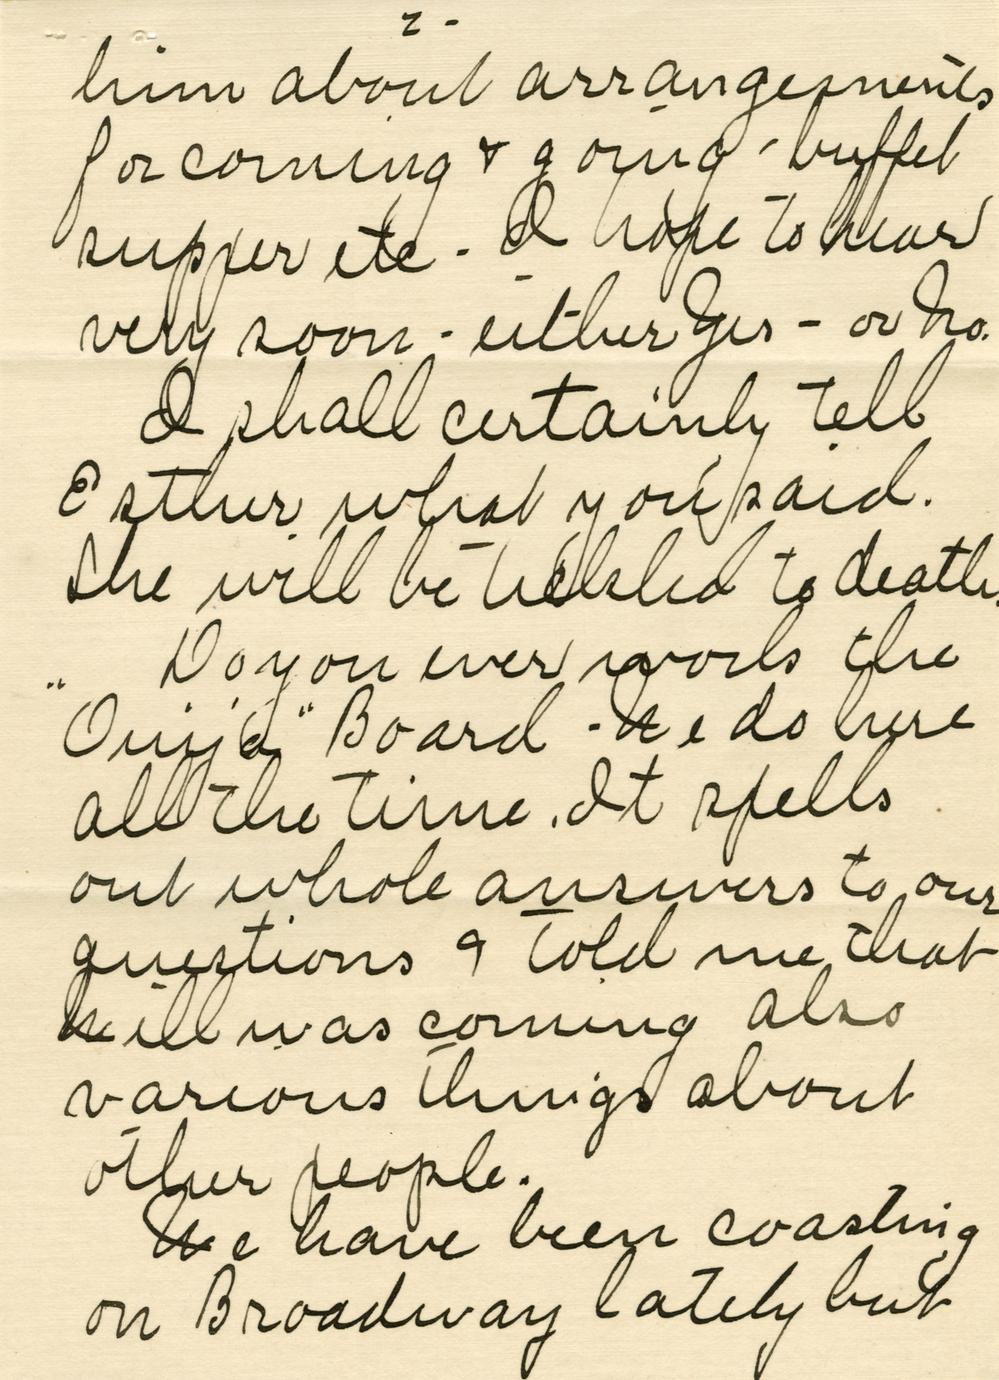 2-
him about arrangements
for coming & going - buffet
supper etc - I hope to hear
very soon - either Yes - or No.
I shall certainly tell
Esther what you said.
She will be tickled to death.
Do you ever work the
"Ouija" Board - We do here
all the time. It spells
out whole answers to our
questions & told me that
Will was coming also
various things about
other people.
We have been coasting
on Broadway lately but